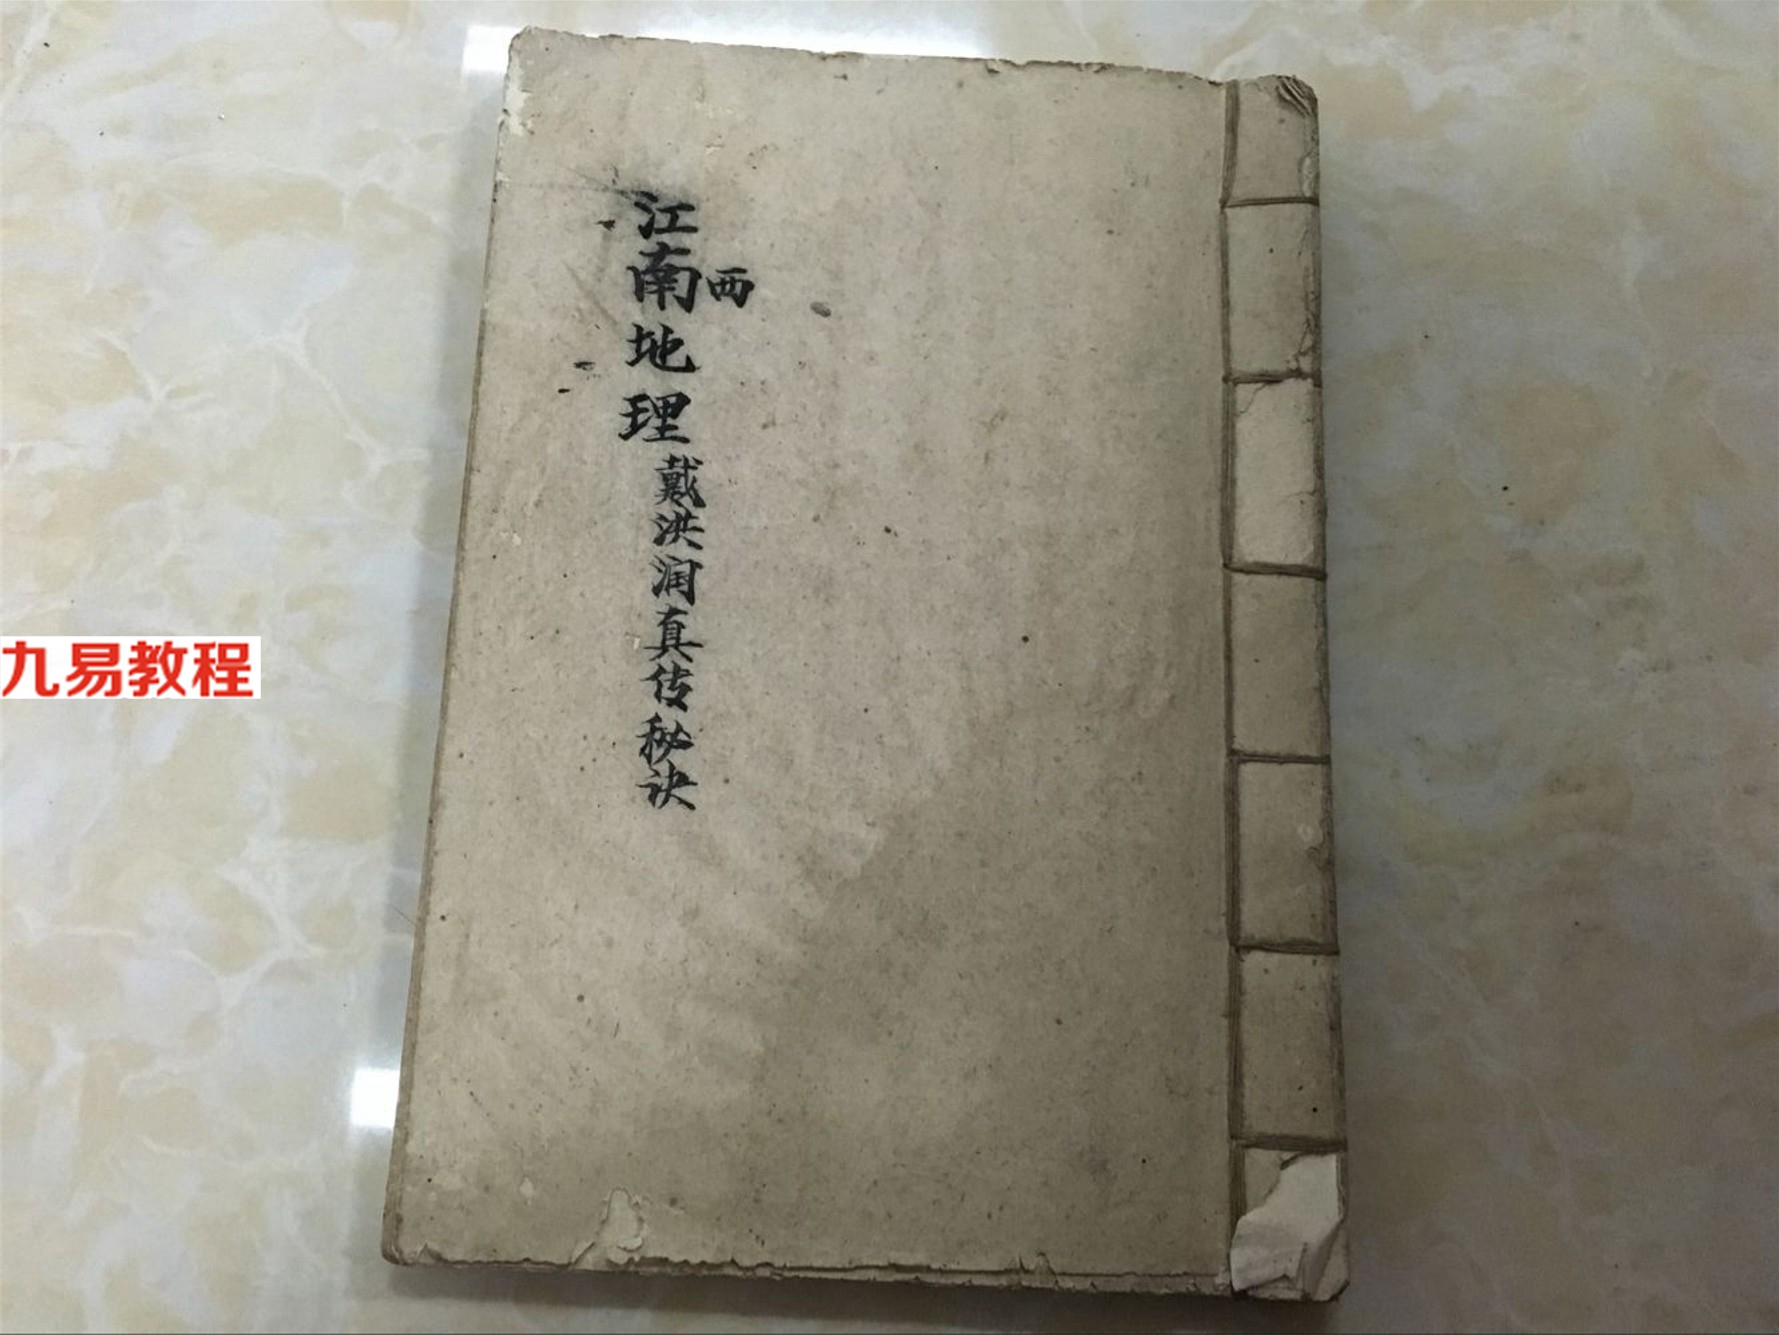 江南地理戴洪润真传秘诀
西
九易教程